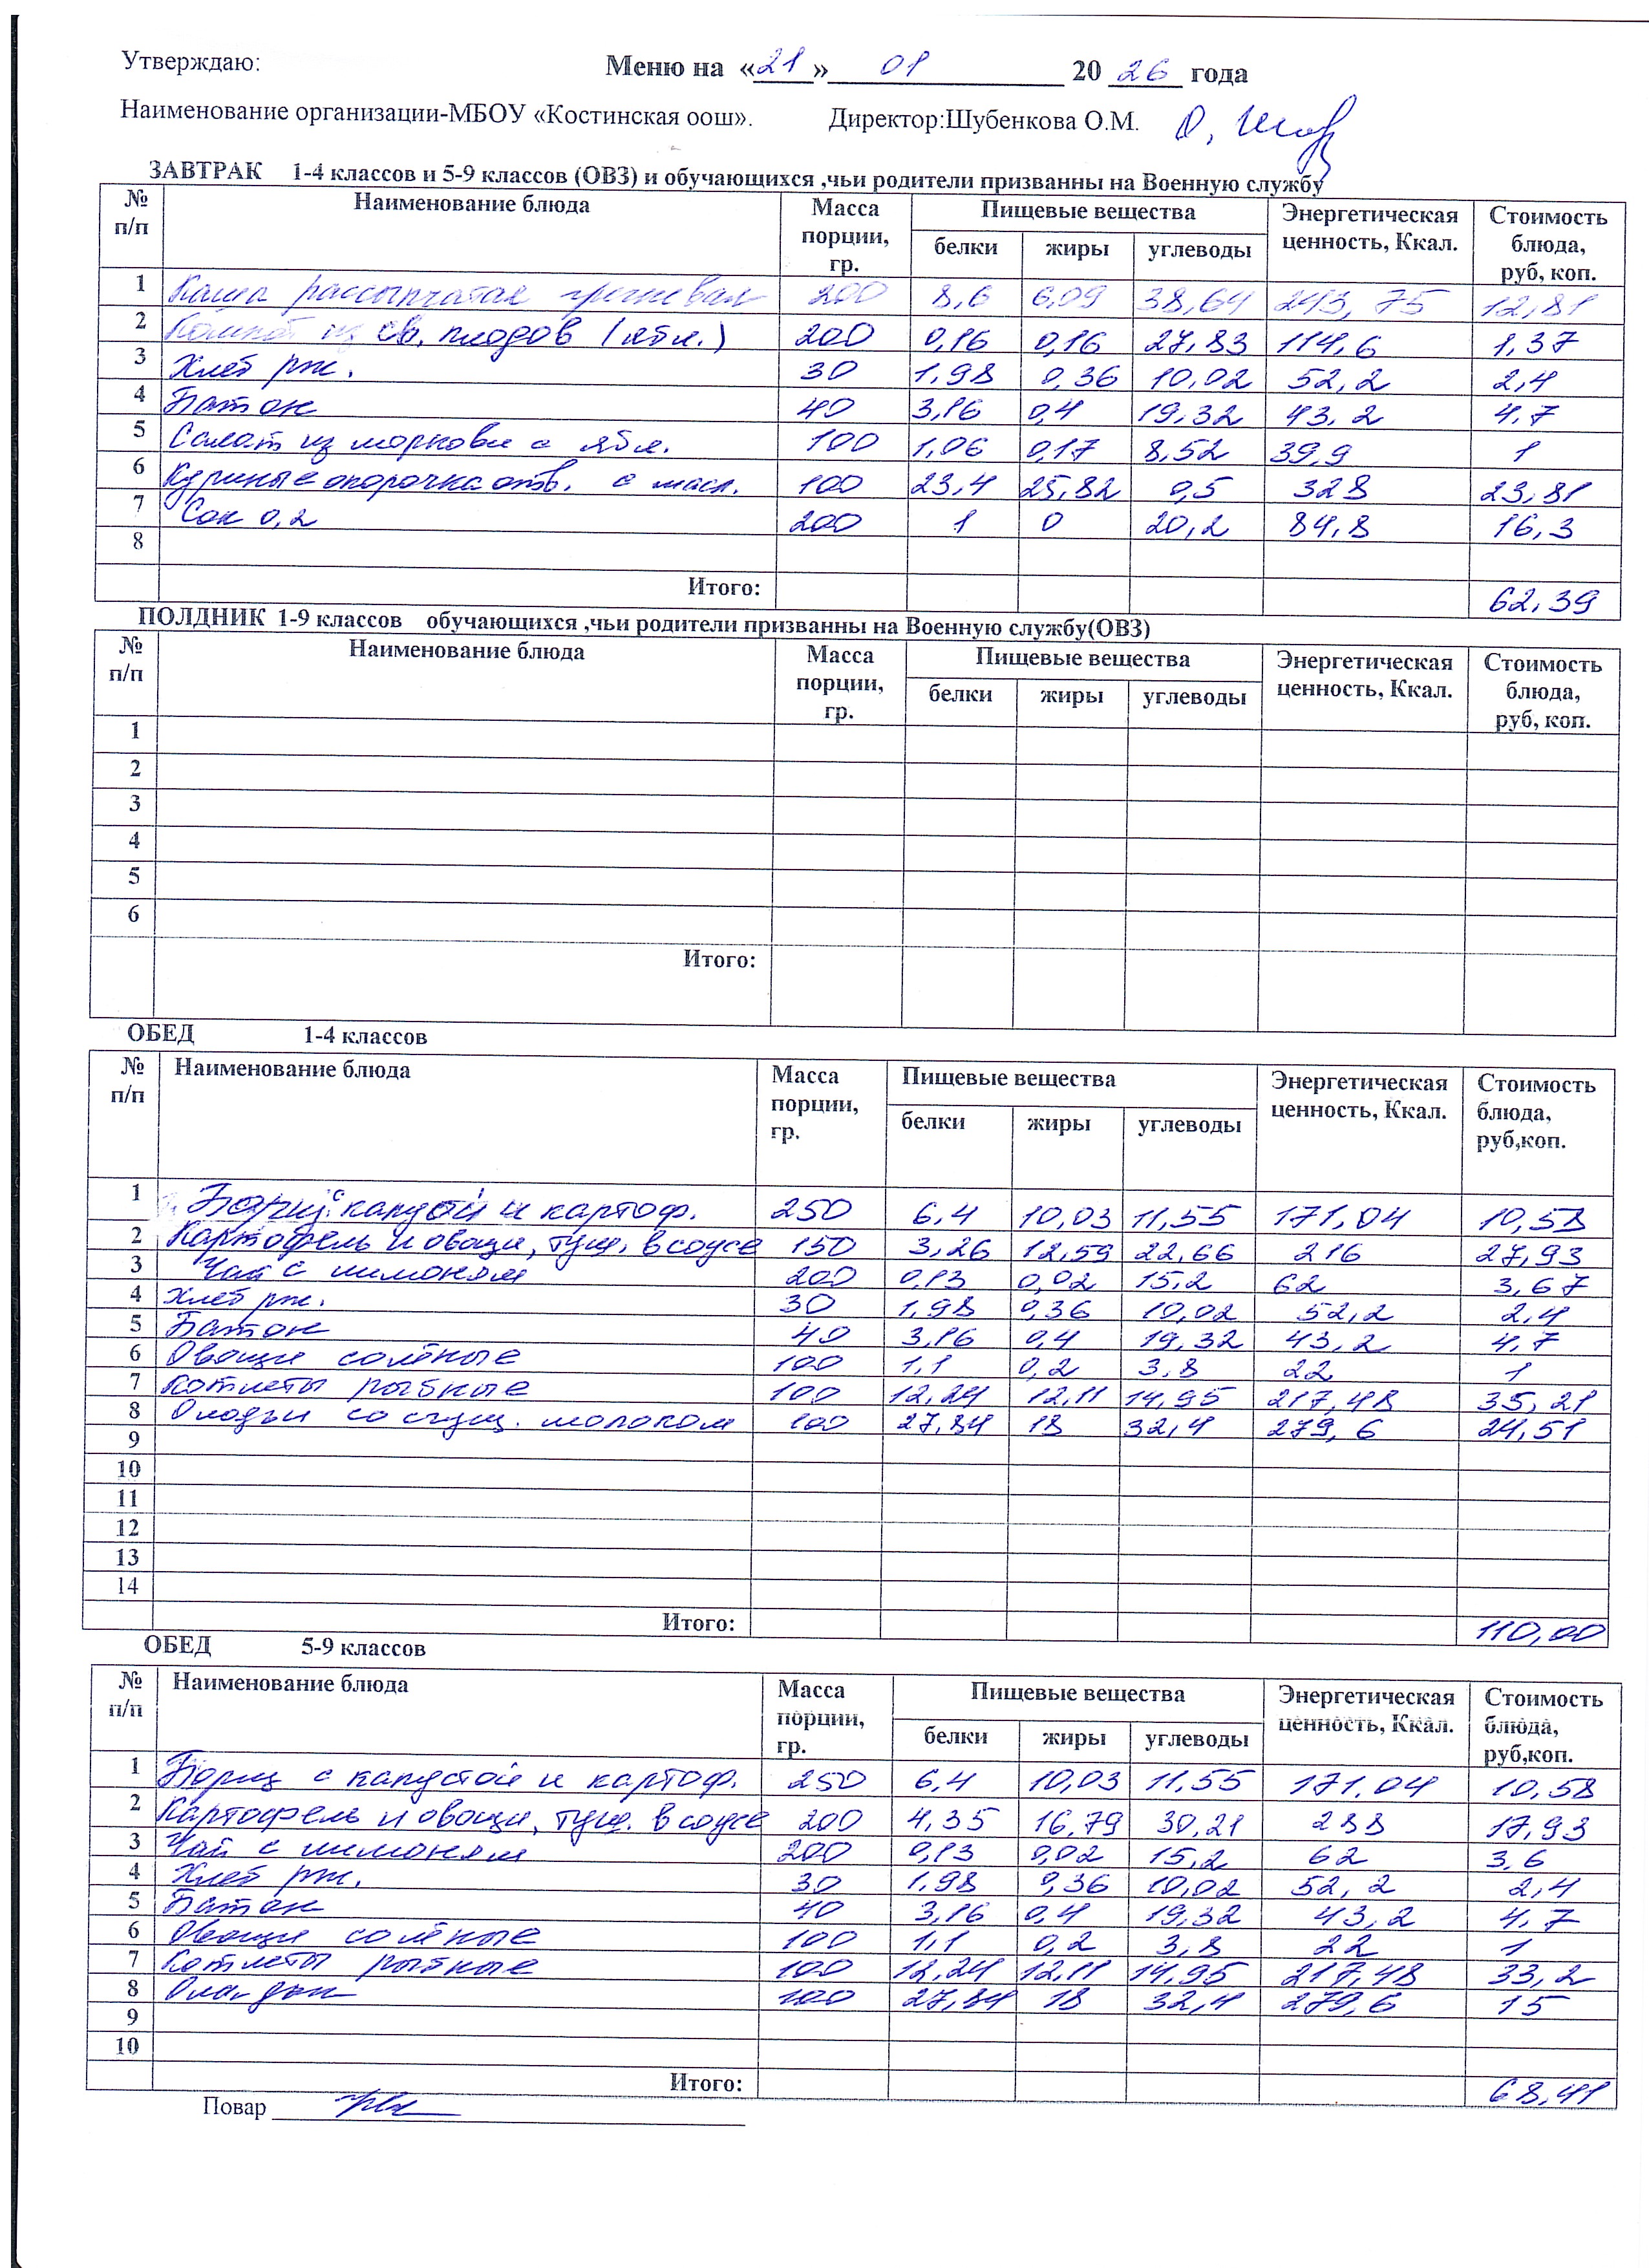 Утверждаю:
Меню на «21» 01 20 26 года
Наименование организации-МБОУ «Костинская оош». Директор:Шубенкова О.М.
ЗАВТРАК 1-4 классов и 5-9 классов (ОВЗ) и обучающихся ,чьи родители призванны на Военную службу
№ п/п Наименование блюда Масса порции, гр. Пищевые вещества Энергетическая ценность, Ккал. Стоимость блюда, руб, коп.
белки жиры углеводы
1 Каша рассыпчатая гречневая 200 8,6 6,09 38,64 243,75 12,81
2 Компот из св. плодов (ябл.) 200 0,16 0,16 27,83 114,6 1,37
3 Хлеб рж. 30 1,98 0,36 10,02 52,2 2,4
4 Батон 40 3,16 0,4 19,32 43,2 4,7
5 Салат из моркови с ябл. 100 1,06 0,17 8,52 39,9 1
6 Куриные окорочка отв. с масл. 100 23,4 25,82 0,5 328 23,81
7 Сок 0,2 200 1 0 20,2 84,8 16,3
8
Итого: 62,39
ПОЛДНИК 1-9 классов обучающихся ,чьи родители призванны на Военную службу(ОВЗ)
№ п/п Наименование блюда Масса порции, гр. Пищевые вещества Энергетическая ценность, Ккал. Стоимость блюда, руб, коп.
белки жиры углеводы
1
2
3
4
5
6
Итого:
ОБЕД 1-4 классов
№ п/п Наименование блюда Масса порции, гр. Пищевые вещества Энергетическая ценность, Ккал. Стоимость блюда, руб,коп.
белки жиры углеводы
1 Борщ с капустой и картоф. 250 6,4 10,03 11,55 171,04 10,58
2 Картофель и овощи, туш. в соусе 150 3,26 12,59 22,66 216 27,93
3 Чай с лимоном 200 0,13 0,02 15,2 62 3,67
4 Хлеб рж. 30 1,98 0,36 10,02 52,2 2,4
5 Батон 40 3,16 0,4 19,32 43,2 4,7
6 Овощи солёные 100 1,1 0,2 3,8 22 1
7 Котлеты рыбные 100 12,24 12,11 14,95 217,48 35,21
8 Оладьи со сгущ. молоком 100 27,84 18 32,4 279,6 24,51
9
10
11
12
13
14
Итого: 110,00
ОБЕД 5-9 классов
№ п/п Наименование блюда Масса порции, гр. Пищевые вещества Энергетическая ценность, Ккал. Стоимость блюда, руб,коп.
белки жиры углеводы
1 Борщ с капустой и картоф. 250 6,4 10,03 11,55 171,04 10,58
2 Картофель и овощи, туш. в соусе 200 4,35 16,79 30,21 288 17,93
3 Чай с лимоном 200 0,13 0,02 15,2 62 3,6
4 Хлеб рж. 30 1,98 0,36 10,02 52,2 2,4
5 Батон 40 3,16 0,4 19,32 43,2 4,7
6 Овощи солёные 100 1,1 0,2 3,8 22 1
7 Котлеты рыбные 100 12,24 12,11 14,95 217,48 33,2
8 Оладьи 100 27,84 18 32,4 279,6 15
9
10
Итого: 68,41
Повар